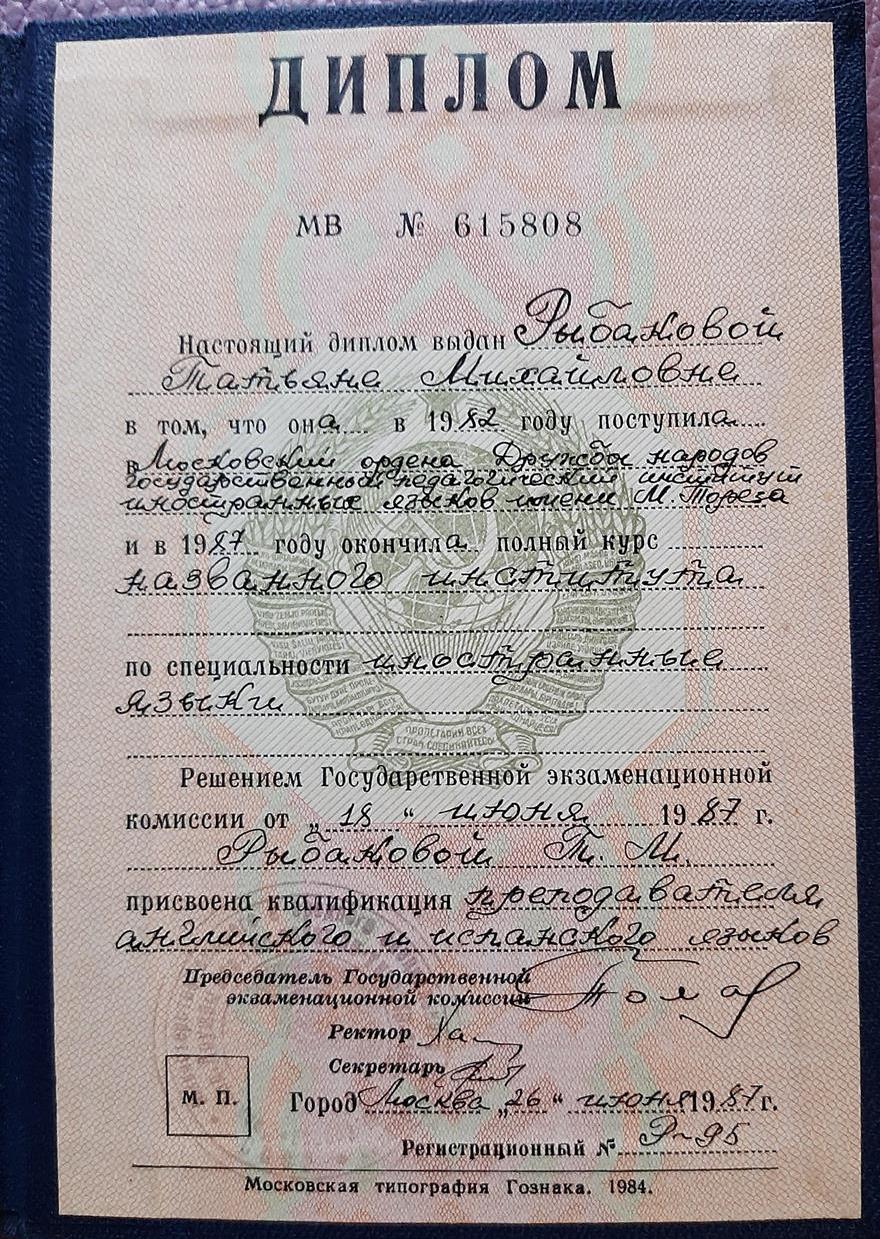 ДИПЛОМ
МВ № 615808
Настоящий диплом выдан Рыбаковой
Татьяне Михайловне
в том, что она в 1982 году поступила
в Московский ордена Дружбы народов
государственный педагогический институт
иностранных языков имени М. Тореза
и в 1987 году окончила полный курс
названного института
по специальности иностранные
языки
ПРОЛЕТАРИИ ВСЕХ
СТРАН, СОЕДИНЯЙТЕСЬ!
Решением Государственной экзаменационной
комиссии от „18“ июня 1987 г.
Рыбаковой Т. М.
присвоена квалификация преподавателя
английского и испанского языков
Председатель Государственной
экзаменационной комиссии
Ректор
Секретарь
М. П.
Город Москва „26“ июня 1987 г.
Регистрационный № Р-95
Московская типография Гознака. 1984.